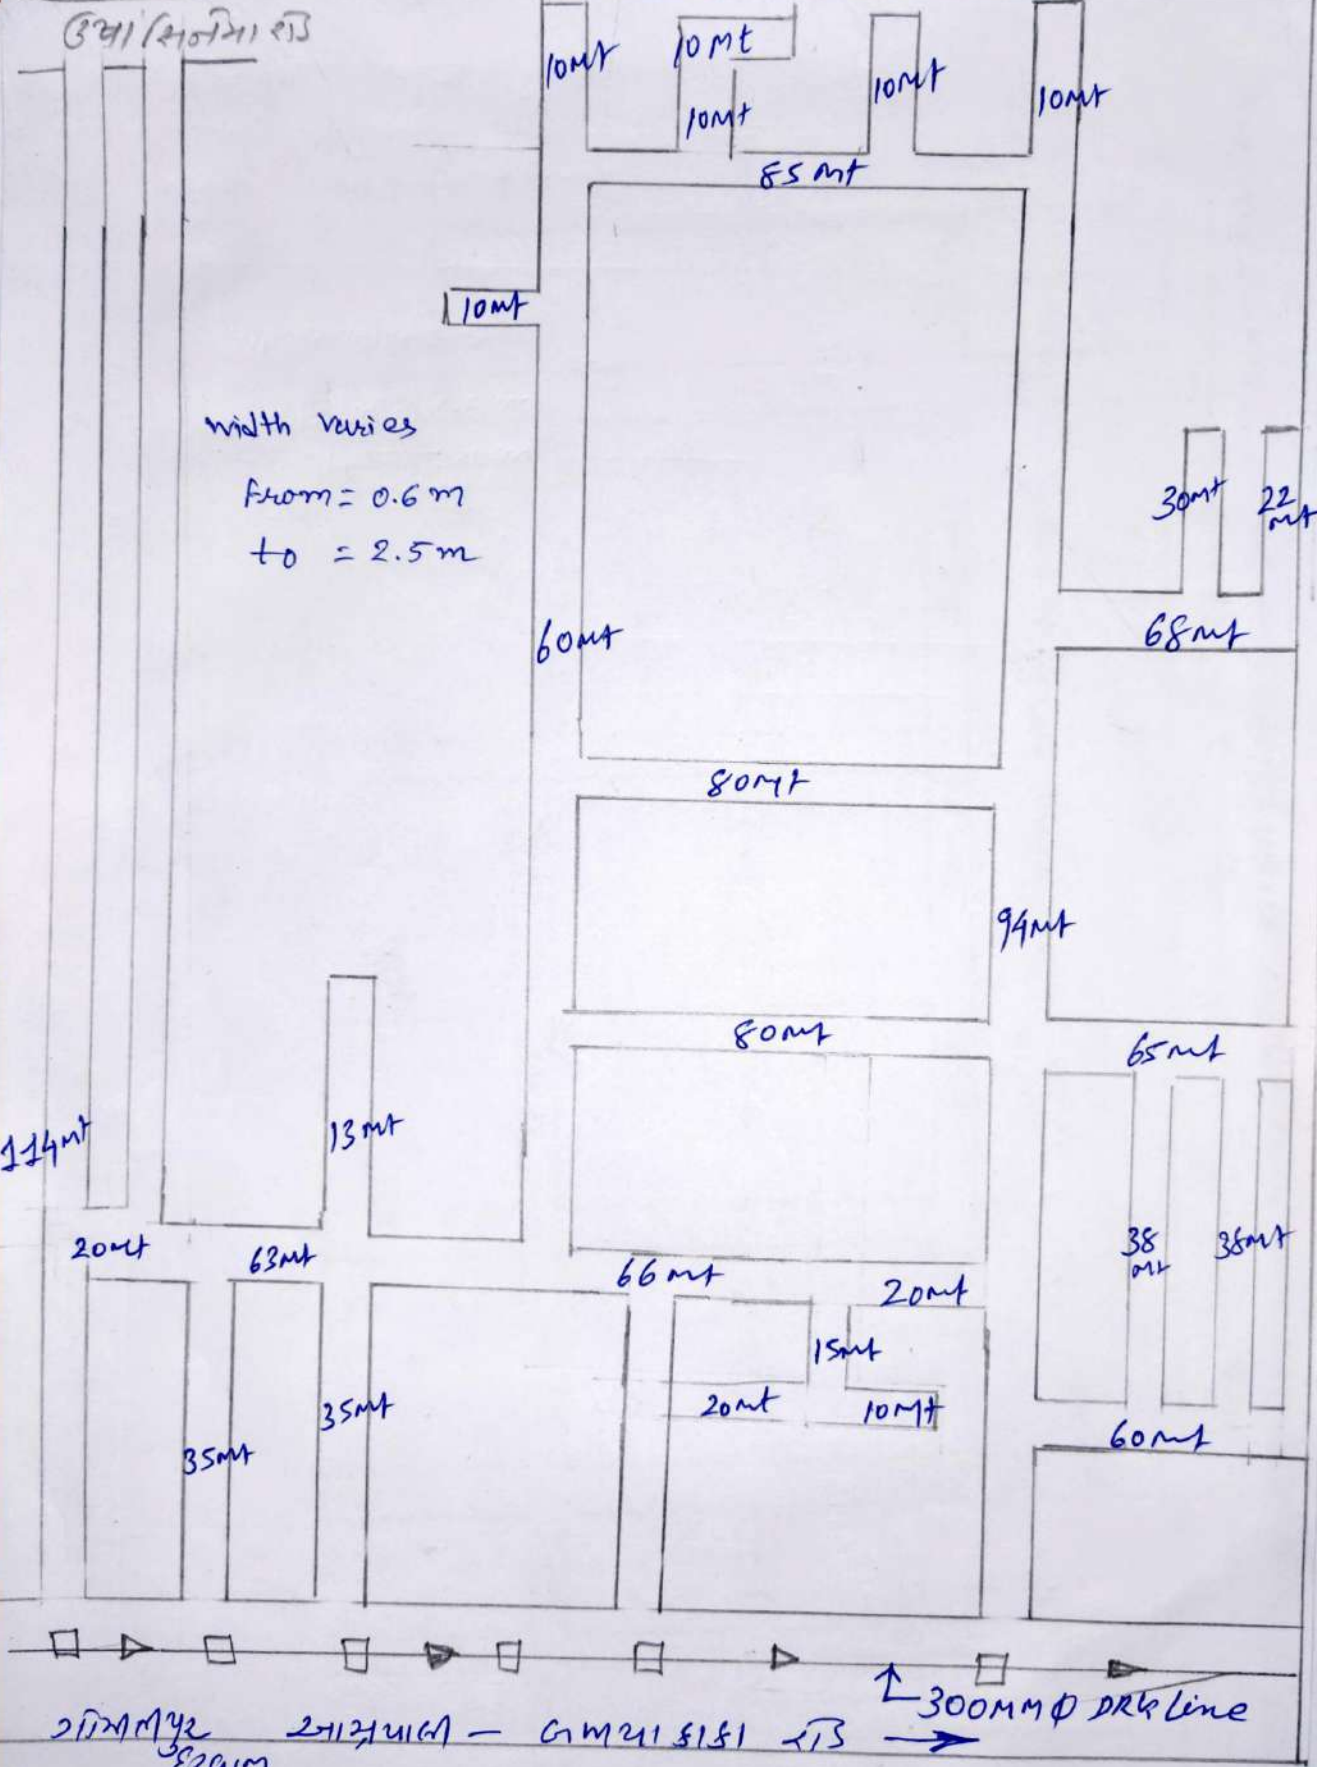 10mt
10mt
10mt
10mt
10mt
85mt
10mt
width varies
From = 0.6 m
to = 2.5 m
30mt
22 mt
68mt
60mt
80mt
94mt
80mt
65mt
114mt
13mt
20mt
63mt
66mt
20mt
38 mt
38mt
15mt
35mt
20mt
10mt
35mt
60mt
300MMΦ DRG Line